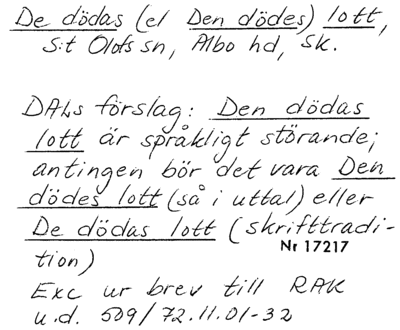 De dödas (el Den dödes) lott,
S:t Olofs sn, Albo hd, Sk.
DALs förslag: Den dödas
lott är språkligt störande;
antingen bör det vara Den
dödes lott (så i uttal) eller
De dödas lott (skrifttradi-
tion)
Nr 17217
Exc ur brev till RAK
u.d. 509/72.11.01-32